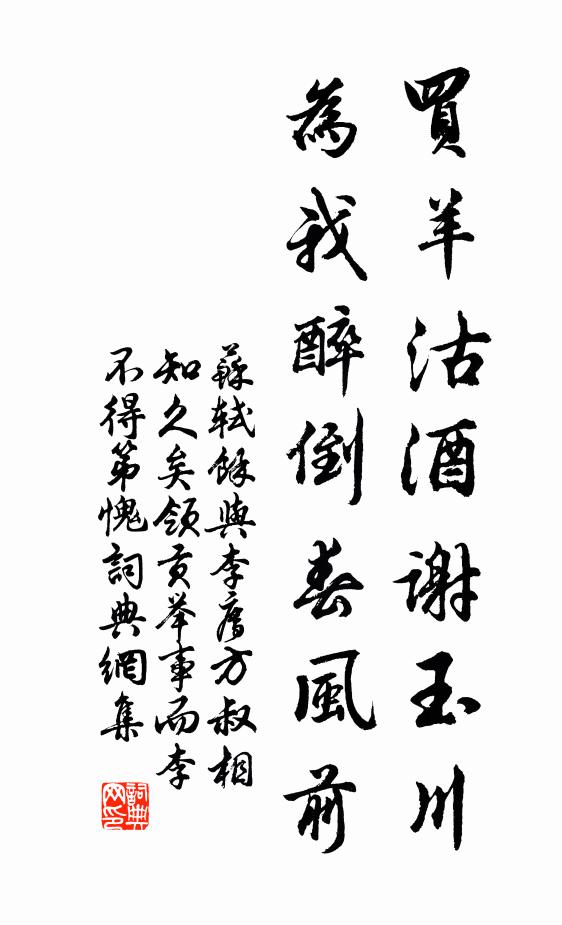 買羊沽酒謝玉川
為我醉倒春風前
蘇軾餘與李廌方叔相
知久矣領貢舉事而李
不得第愧詞典網集
詞典
网印